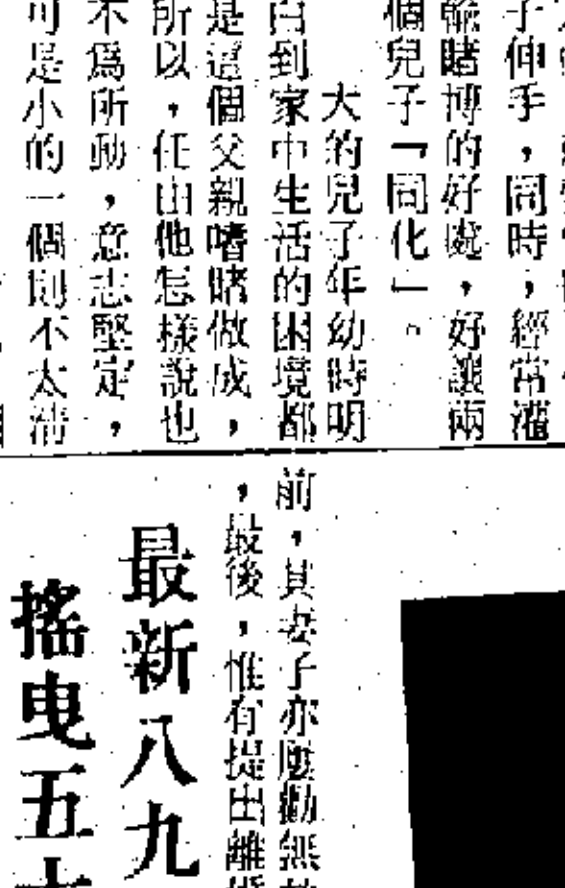 子伸手，同時，經常灌
輸賭博的好處，好讓兩
個兒子「同化」。
大的兒子年幼時明
白到家中生活的困境都
是這個父親嗜賭做成，
所以，任由他怎樣說也
不爲所動，意志堅定，
可是小的一個則不太清
前，其妻子亦屢勸無
，最後，惟有提出離
最新八九
搖曳五